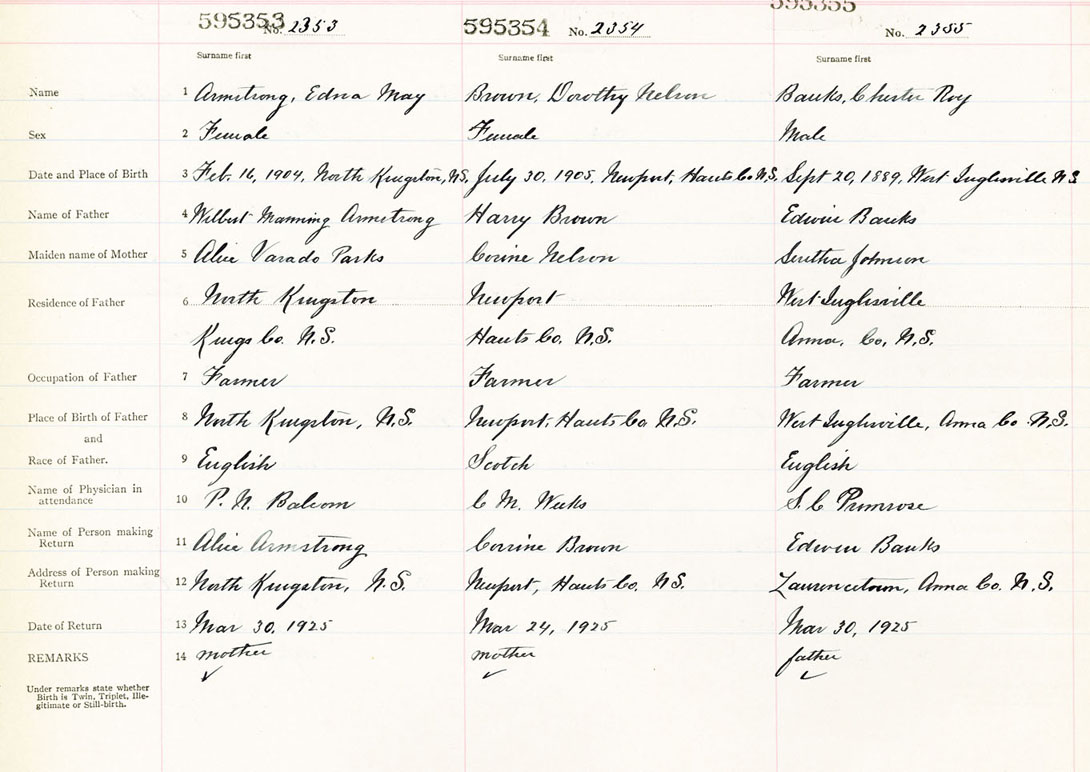 595353 595354 595355
No. 2353 No. 2354 No. 2355
Surname first Surname first Surname first
Name 1 Armstrong, Edna May Brown, Dorothy Nelson Banks, Chester Roy
Sex 2 Female Female Male
Date and Place of Birth 3 Feb. 16, 1904, North Kingston, N.S. July 30, 1905, Newport, Hants Co N.S. Sept 20, 1889, West Inglisville N.S
Name of Father 4 Wilbert Manning Armstrong Harry Brown Edwin Banks
Maiden name of Mother 5 Alice Varado Parks Corine Nelson Johnson
Residence of Father 6 North Kingston Newport West Inglisville
Kings Co. N.S. Hants Co. N.S. Anna. Co, N.S.
Occupation of Father 7 Farmer Farmer Farmer
Place of Birth of Father 8 North Kingston, N.S. Newport, Hants Co N.S. West Inglisville, Anna Co. N.S.
and
Race of Father. 9 English Scotch English
Name of Physician in
attendance 10 P. N. Balcom C M. Weeks S. C Primrose
Name of Person making
Return 11 Alice Armstrong Corrine Brown Edwin Banks
Address of Person making
Return 12 North Kingston, N.S. Newport, Hants Co. N.S. Lawrencetown, Anna Co. N.S.
Date of Return 13 Mar 30, 1925 Mar 24, 1925 Mar 30, 1925
REMARKS 14 mother mother father
Under remarks state whether
Birth is Twin, Triplet, Ille-
gitimate or Still-birth.